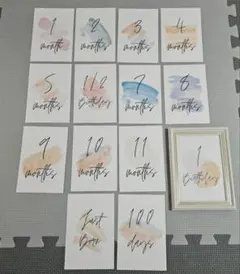 1
months
2
months
3
months
4
months
5
months
1/2
Birthday
7
months
8
months
9
months
10
months
11
months
1
Birthday
Just
Born
100
days